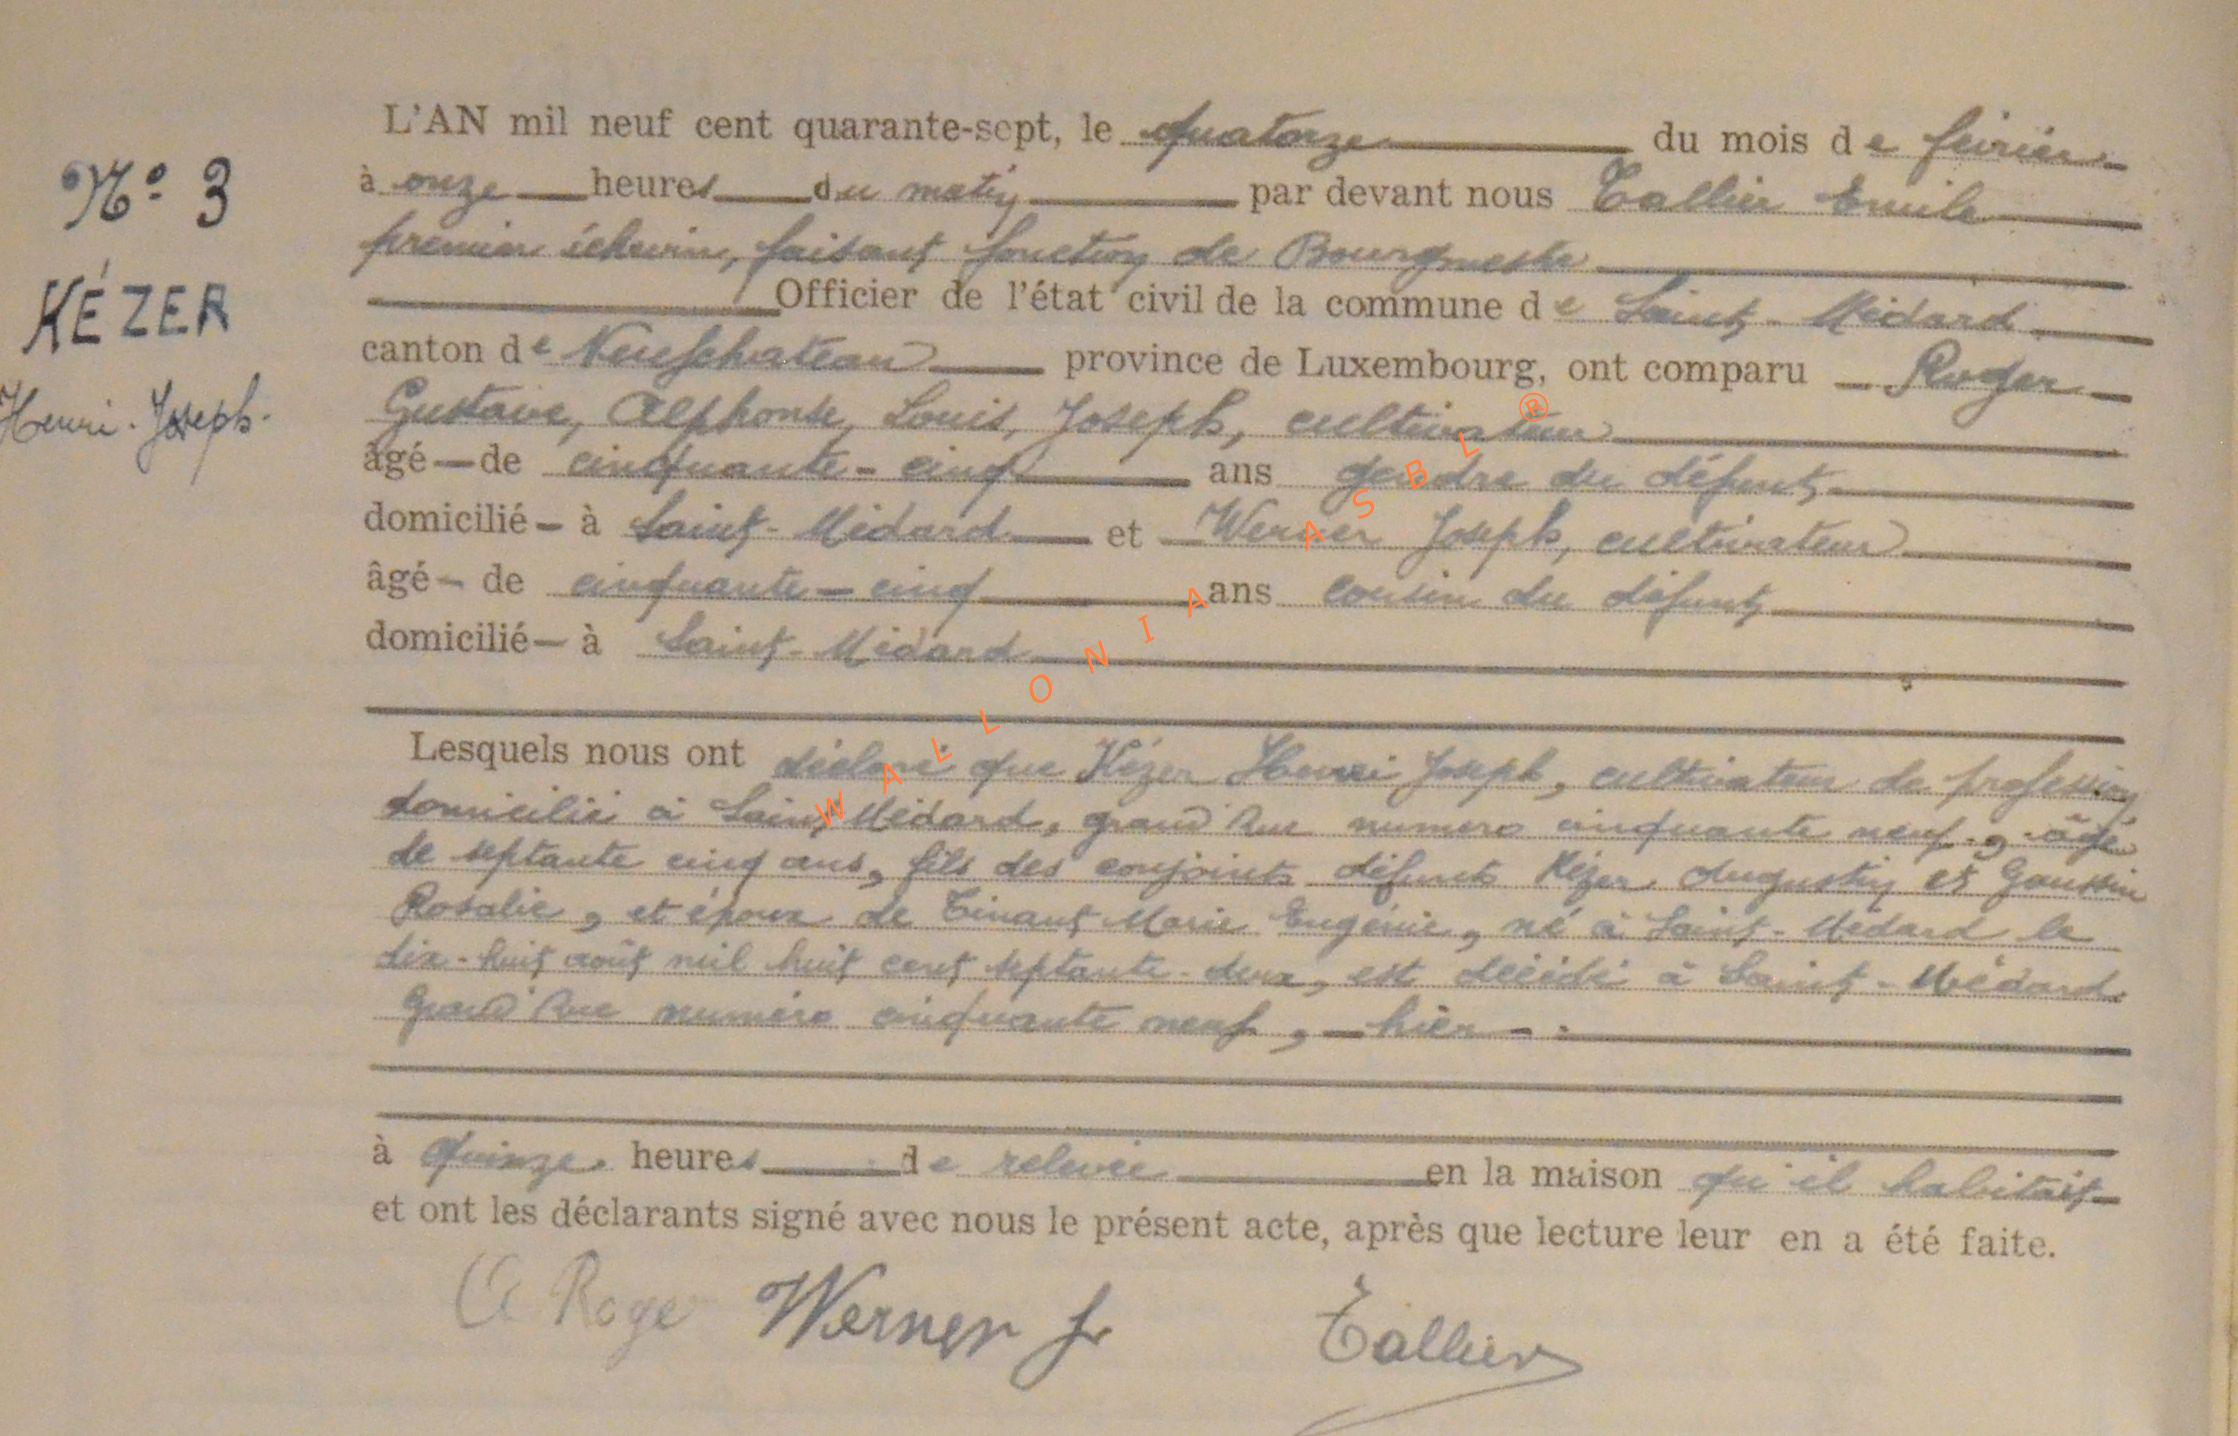 L'AN mil neuf cent quarante-sept, le quatorze du mois de février
N° 3
à onze heures du matin par devant nous Tallier Emile
premier échevin, faisant fonction de Bourgmestre
KÉZER
Officier de l'état civil de la commune de Saint-Médard
canton de Neufchateau province de Luxembourg, ont comparu Roger
Henri-Joseph.
Gustave, Alphonse, Louis, Joseph, cultivateur
âgé de cinquante-cinq ans gendre du défunt
domicilié à Saint-Médard et Werner Joseph, cultivateur
âgé de cinquante-cinq ans cousin du défunt
domicilié à Saint-Médard
Lesquels nous ont déclaré que Kézer Henri Joseph, cultivateur de profession
domicilié à Saint Médard, grand'Rue numéro cinquante neuf, âgé
de septante cinq ans, fils des conjoints défunts Kézer Augustin et Goussin
Rosalie, et époux de Tinant Marie Eugénie, né à Saint-Médard le
dix-huit août mil huit cent septante-deux, est décédé à Saint-Médard
Grand'Rue numéro cinquante neuf, hier
à quinze heures de relevée en la maison qu'il habitait
et ont les déclarants signé avec nous le présent acte, après que lecture leur en a été faite.
Roger Werner J Tallier
WALLONIA ASBL ®